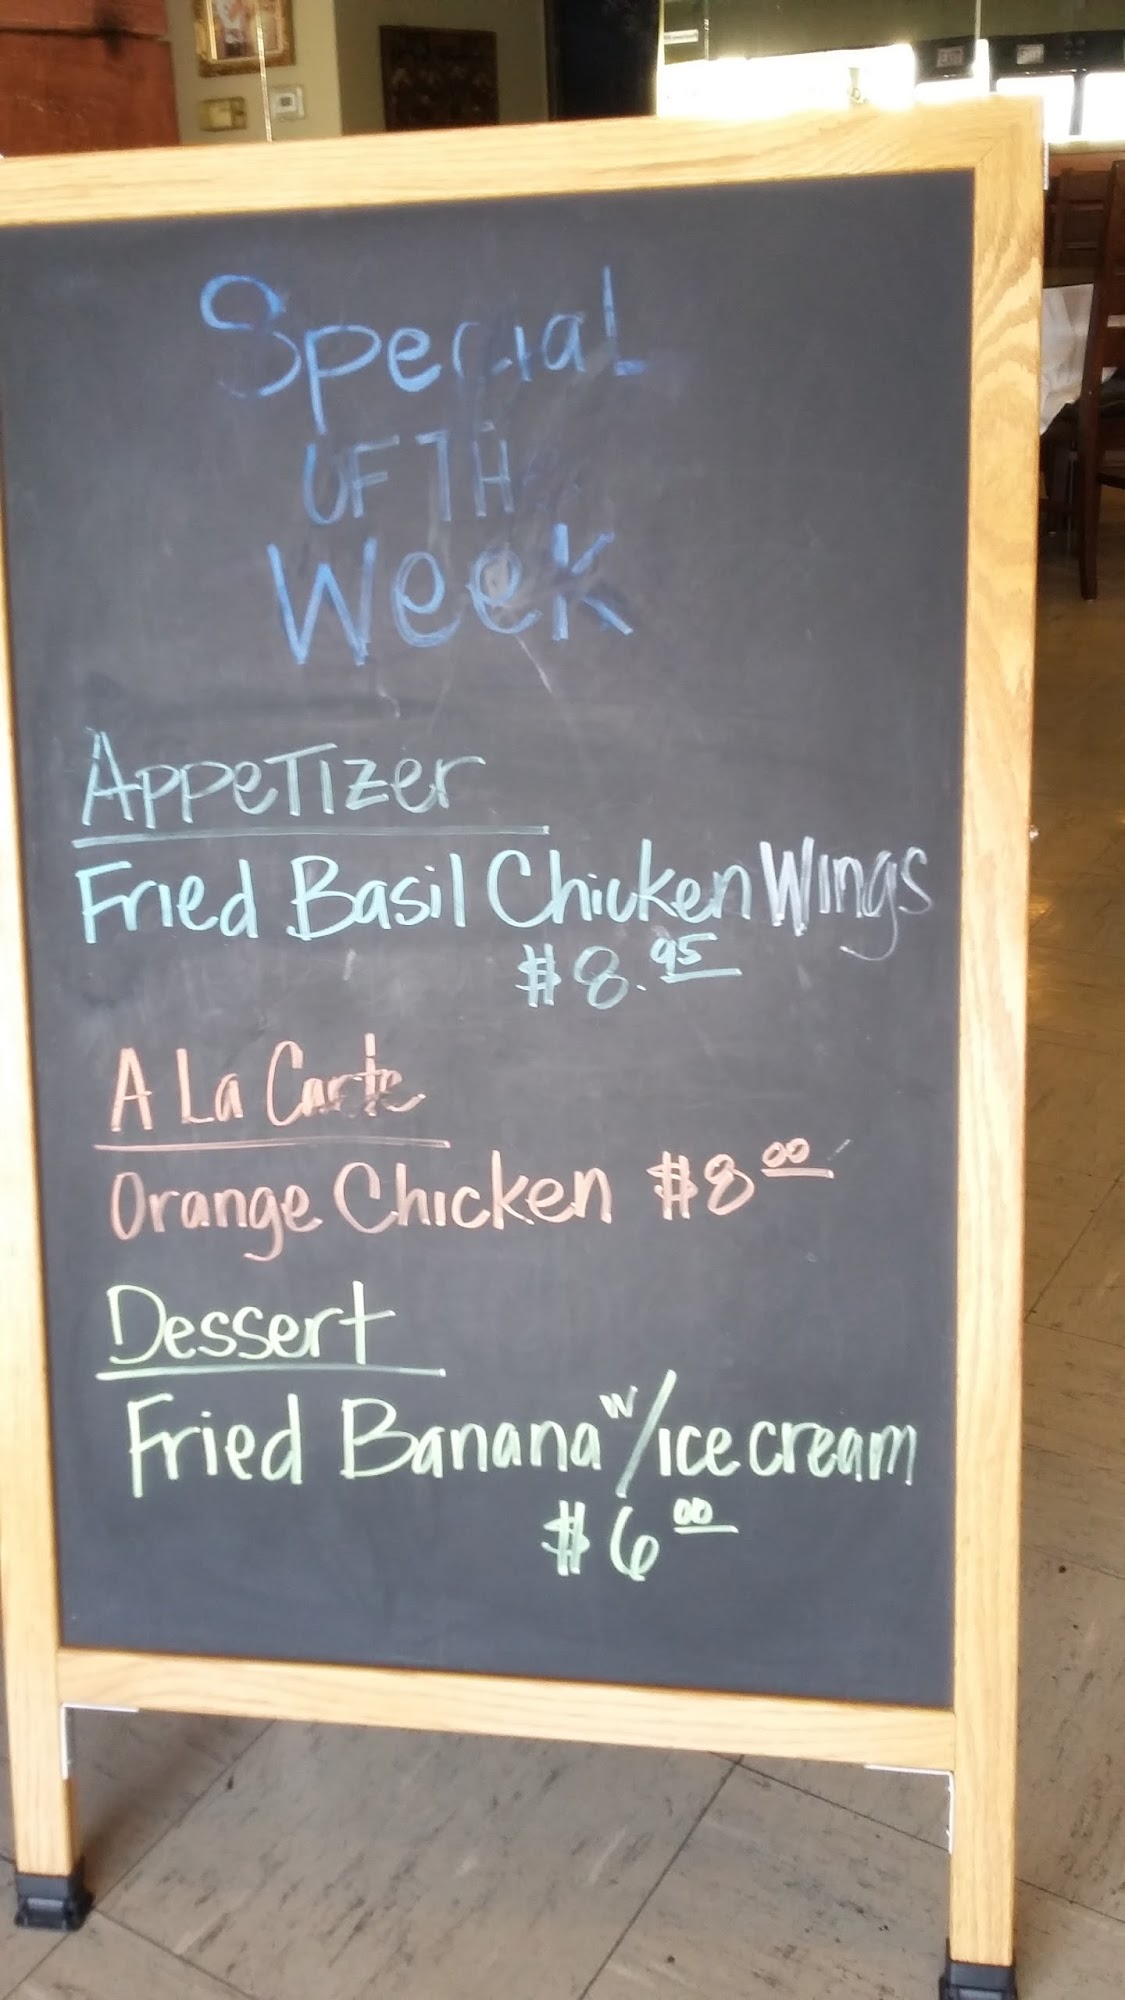 Special
OF TH
Week
Appetizer
Fried Basil Chicken Wings
$8.95
A La Carte
Orange Chicken $8 00
Dessert
Fried Banana w/ice cream
$6 00
EXIT